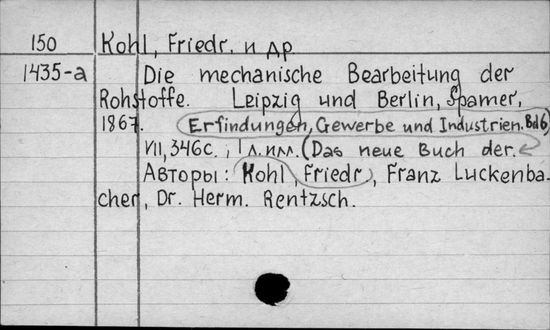 150 Kohl, Friedr. и др
1435-a Die mechanische Bearbeitung der
Rohstoffe. Leipzig und Berlin, Spamer,
1867. Erfindungen, Gewerbe und Industrien. Bd 6)
VII, 346с., 1 л. илл. (Das neue Buch der.
Авторы: Kohl, Friedr., Franz Luckenba-
cher, Dr. Herm. Rentzsch.